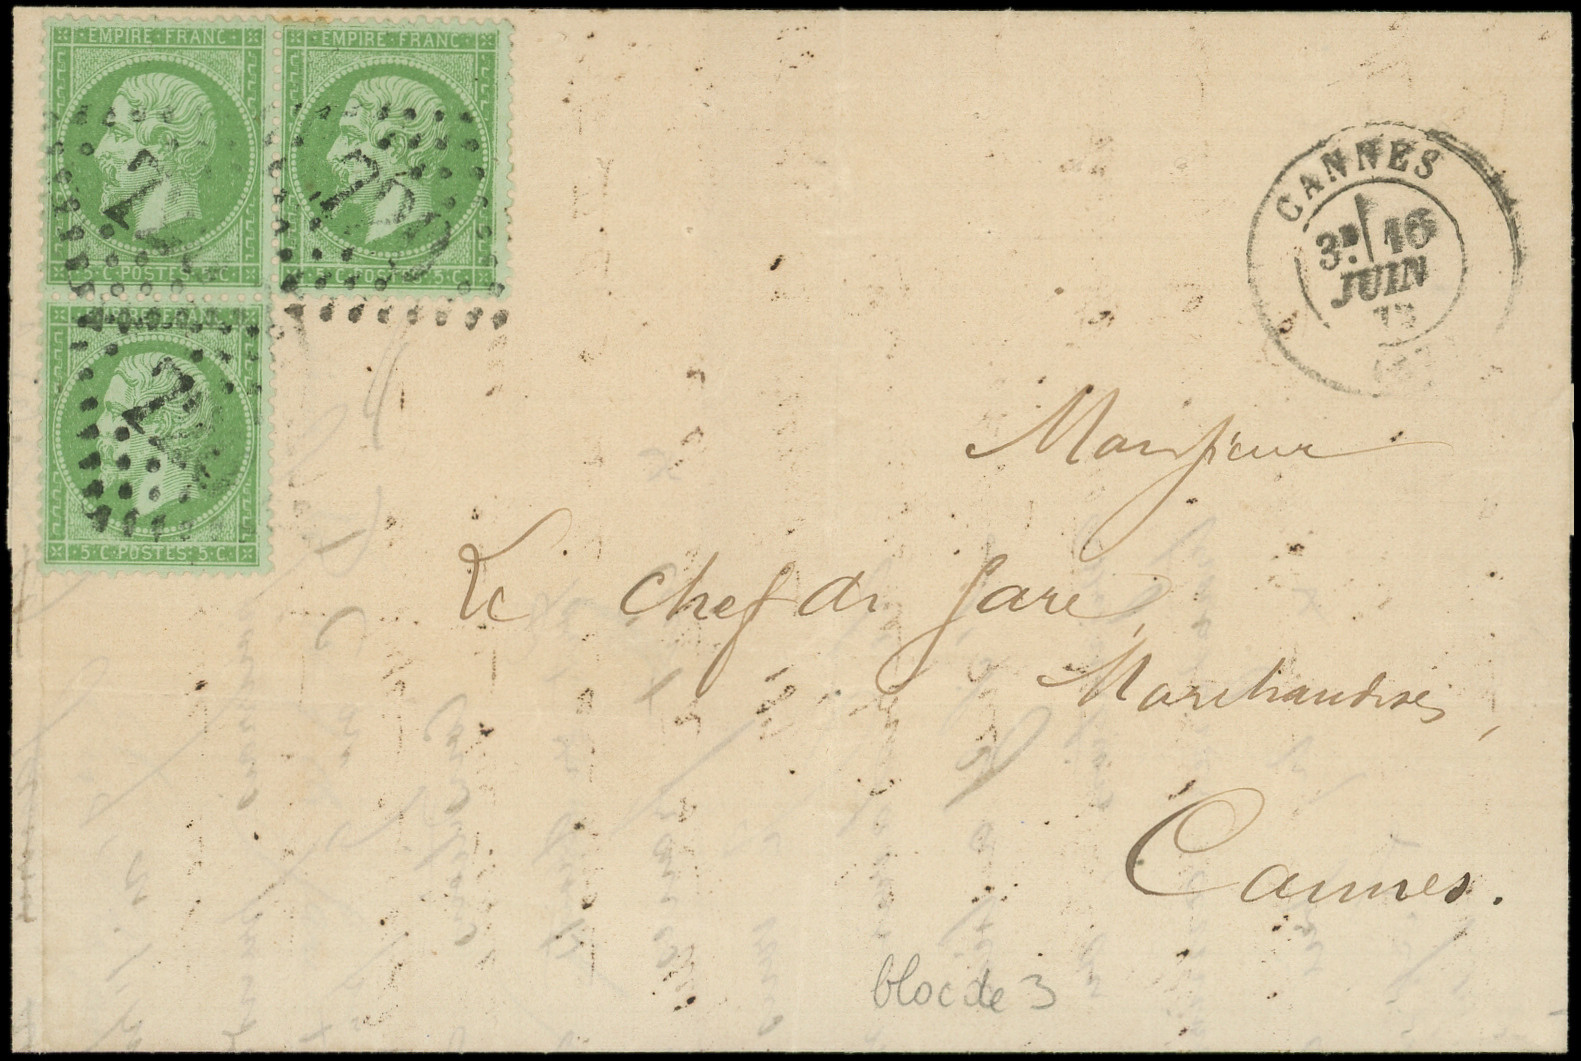 EMPIRE·FRANC·
EMPIRE·FRANC·
·5·C·POSTES·5·C·
·5·C·POSTES·5·C·
·5·C·POSTES·5·C·
CANNES
3E 16
JUIN
73
Monsieur
Le chef de gare,
Marchandises,
Cannes.
bloc de 3